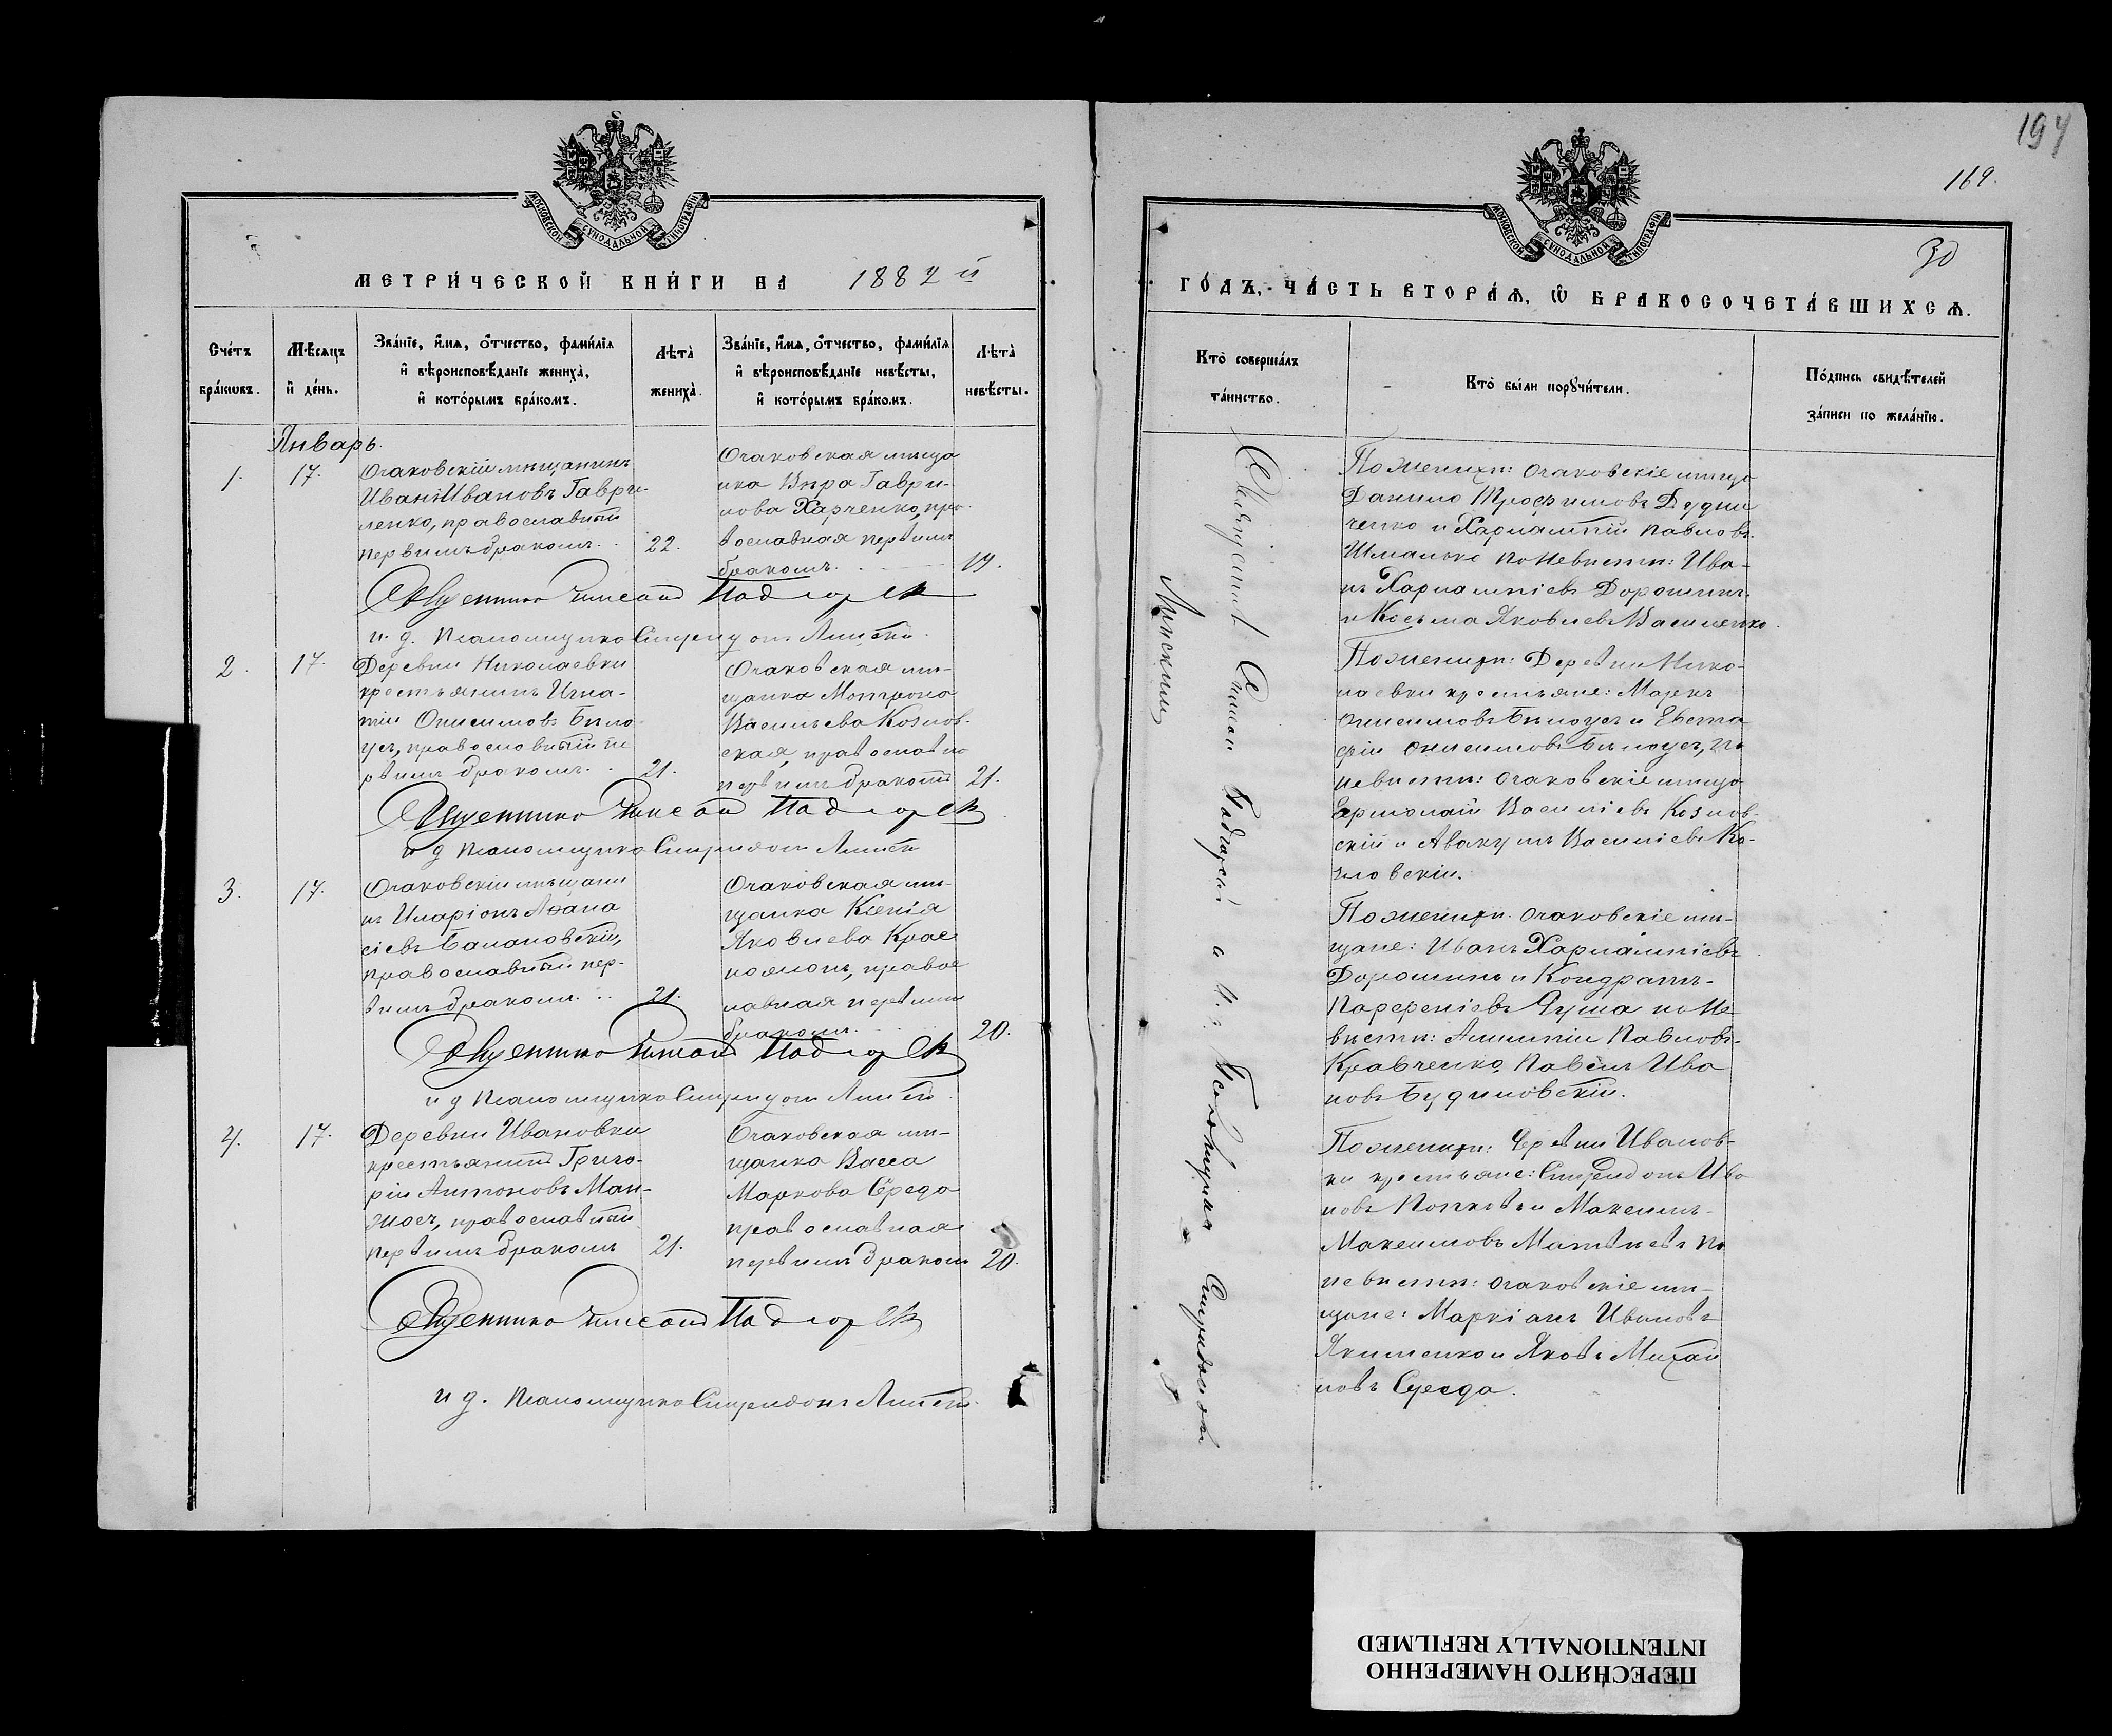 194
169.
30
МОСКОВСКОЙ СУНОДАЛЬНОЙ ТИПОГРАФІИ
МЕТРИ́ЧЕСКОЙ КНИ́ГИ НА 1882 й
Сче́тъ бра́кωвъ.
Мѣ́сяцъ и҆ де́нь.
Зва́нїе, и҆́мя, ѻ҆́тчество, фами́лїя и҆ вѣроисповѣ́данїе жениха̀, и҆ кото́рымъ бра́комъ.
Лѣта̀ жениха̀.
Зва́нїе, и҆́мя, ѻ҆́тчество, фами́лїя и҆ вѣроисповѣ́данїе невѣ́сты, и҆ кото́рымъ бра́комъ.
Лѣта̀ невѣ́сты.
Январь.
1.
17.
Очаковскій мѣщанинъ
Иванъ Ивановъ Гаври-
ленко, православный
первымъ бракомъ.
22.
Очаковская мѣща
нка Вѣра Гаври-
лова Харченко, пра-
вославная первымъ
бракомъ.
19.
Священникъ
и. д. Псаломщика Спиридонъ
2.
17.
Деревни Николаевки
крестьянинъ Игна-
тій Онисимовъ Бѣло
усъ, православный пе
рвымъ бракомъ.
21.
Очаковская мѣ-
щанка Матрона
Васильева Козлов-
ская, православно
первымъ бракомъ
21.
Священникъ
и д Псаломщика Спиридонъ
3.
17.
Очаковскій мѣщани
нъ Иларіонъ Аѳана
сіевъ Балановскій,
православный пер-
вымъ бракомъ.
21.
Очаковская мѣ-
щанка Ксенія
Яковлева Крас
ноялонъ, правос
лавная первымъ
бракомъ.
20.
Священникъ
и д Псаломщика Спиридонъ
4.
17.
Деревни Ивановки
крестьянинъ Григо-
рій Антоновъ Ман-
жосъ, православный
первымъ бракомъ
21.
Очаковская мѣ-
щанка Васса
Маркова Середа
православная
первымъ бракомъ
20.
Священникъ
и д. Псаломщика Спиридонъ
МОСКОВСКОЙ СУНОДАЛЬНОЙ ТИПОГРАФІИ
ГО́ДЪ, ЧА́СТЬ ВТОРА́Ѧ, Ѡ҆ БРАКОСОЧЕТА́ВШИХСѦ.
Кто̀ соверша́лъ та́инство.
Кто̀ бы́ли порꙋчи́тели.
По́дпись свидѣ́телей за́писи по жела́нїю.
Священникъ
и д. Псаломщика Спиридонъ
По женихѣ: Очаковскіе мѣща
Данило Трофимовъ Дудни
ченко и Харлампій Павловъ
Шмалько По невѣстѣ: Ива-
нъ Харлампіевъ Дорошинъ
и Косьма Яковлевъ Василенко.
По женихѣ: Деревни Нико-
лаевки крестьяне: Маркъ
Онисимовъ Бѣлоусъ и Евста
фій Онисимовъ Бѣлоусъ, По
невѣстѣ: Очаковскіе мѣща
Ермолай Василіевъ Козлов-
скій и Авакумъ Василіевъ Ко-
зловскій.
По женихѣ. Очаковскіе мѣ-
щане: Иванъ Харлампіевъ
Дорошинъ и Кондратъ
Парфеніевъ Чуша по не
вѣстѣ: Павловъ
Кравченко, Павелъ Ива
новъ Будиловскій.
По женихѣ: Деревни Иванов-
ки крестьяне: Спиридонъ Ива
новъ и Максимъ
Максимовъ Матвѣевъ По
невѣстѣ: Очаковскіе мѣ-
щане: Маркіанъ Ивановъ
Якименко и Яковъ Михай
ловъ Середа.
ПЕРЕСНЯТО НАМЕРЕННО
INTENTIONALLY REFILMED